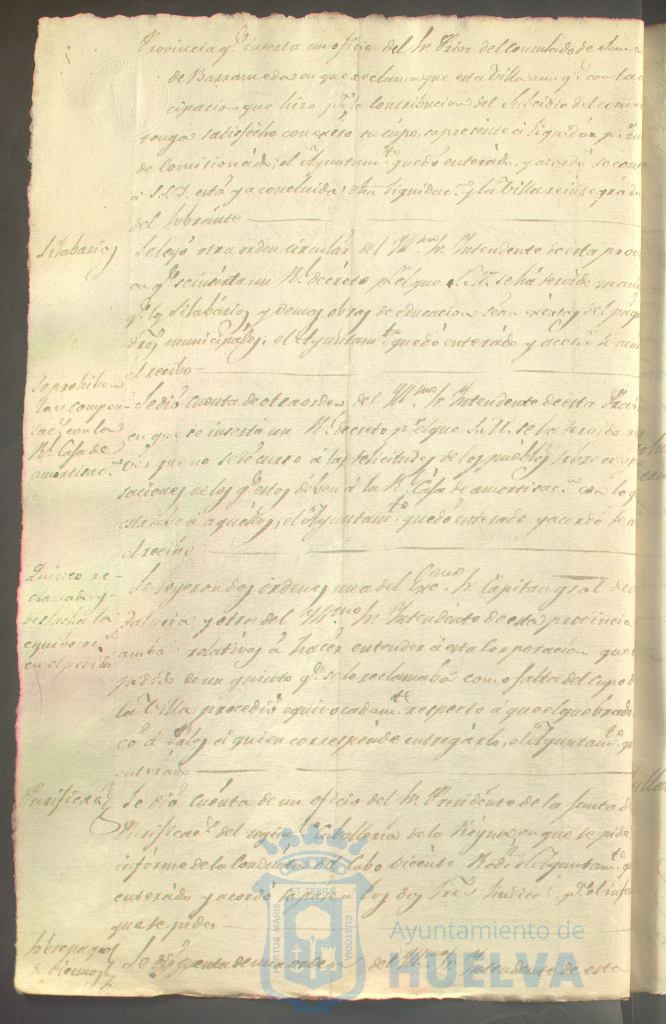 Provincia q.e inserta un oficio del Sr. Prior del Consulado de San
de Barrameda en que reclama que esta Villa aun q.e con la
cipacion que hizo p.a la contribucion del Subsidio del comer
tenga satisfecho con exceso su cupo, se presente a liquidar p.r
de Comisionado; el Ayuntam.to quedó enterado, y acordó se cont
à S.S.I. está ya concluida dha liquidac.n y la Villa reintegrada
del sobrante
Silabarios
Se leyó otra orden circular del Yll.mo Sr. Intendente de esta prov
en q.e se inserta un R.l decreto p.r el que S.M. se ha servido man
q.e los Silabarios y demas obras de educacion sean exentos del pago
dros municipales; el Ayuntam.to quedó enterado y acordó se acu
el recibo
Se prohibe
las compen
sac.s con la
R.l Caja de
amortizac.n
Se dió cuenta de otra orden del Yll.mo Sr. Intendente de esta Provi
en que se inserta un R.l Decreto p.r el que S.M. se ha servido
ver que no se dé curso á las solicitudes de los pueblos sobre
saciones de los q.e estos deben à la R.l Caja de amortizac.n con lo q
à aquellos, el Ayuntam.to quedó enterado y acordó se a
el recibo
Quinto re-
clamado y
deshecha la
equivocac.n
en el pedido
Se leyeron dos órdenes una del Exc.mo Sr. Capitan gral de
dalucia y otra del Yll.mo Sr. Intendente de esta provincia
ambas relativas à hacer entender à esta Corporacion que
pedido de un quinto q.e se le reclamaba como falta del Cupo d
la Villa procedió equivocadam.te respecto à que el que
co à Palos à quien corresponde entregarlo, el Ayuntam.to q
enterado
Purificac.n
Se dió cuenta de un oficio del Sr. Presidente de la Junta d
Purificac.n del regim.to Caballeria de la Reyna en que se pide
informe de la Conducta del Cabo Vicente el Ayuntam.to q
enterado y acordó se pase à los dos Sres Sindicos p.a el infor
que se pide
Se dió cuenta de una orden del Yll.mo Sr. Intendente de esta
PORTUS MARIS
ET TERRE
CUSTODIA
Ayuntamiento de
HUELVA